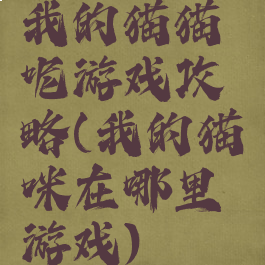 我的猫猫
呢游戏攻
略(我的猫
咪在哪里
游戏)